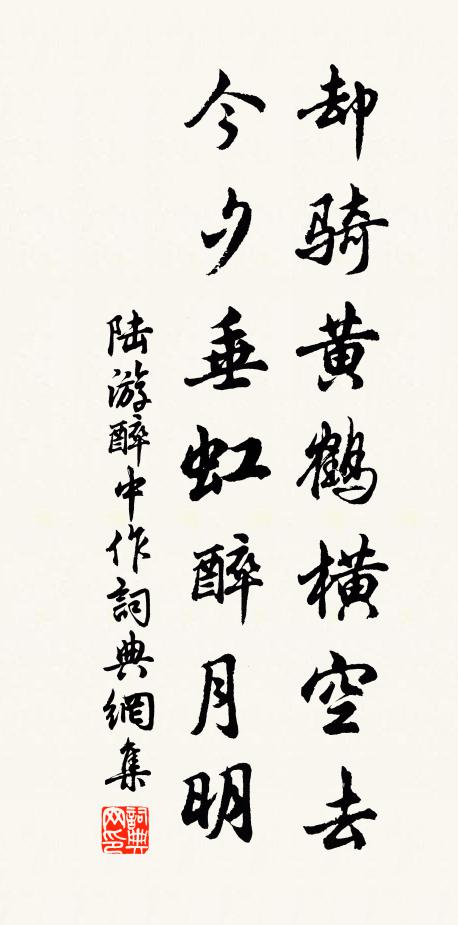 却骑黄鹤横空去
今夕垂虹醉月明
陆游醉中作词典網集
詞典网印